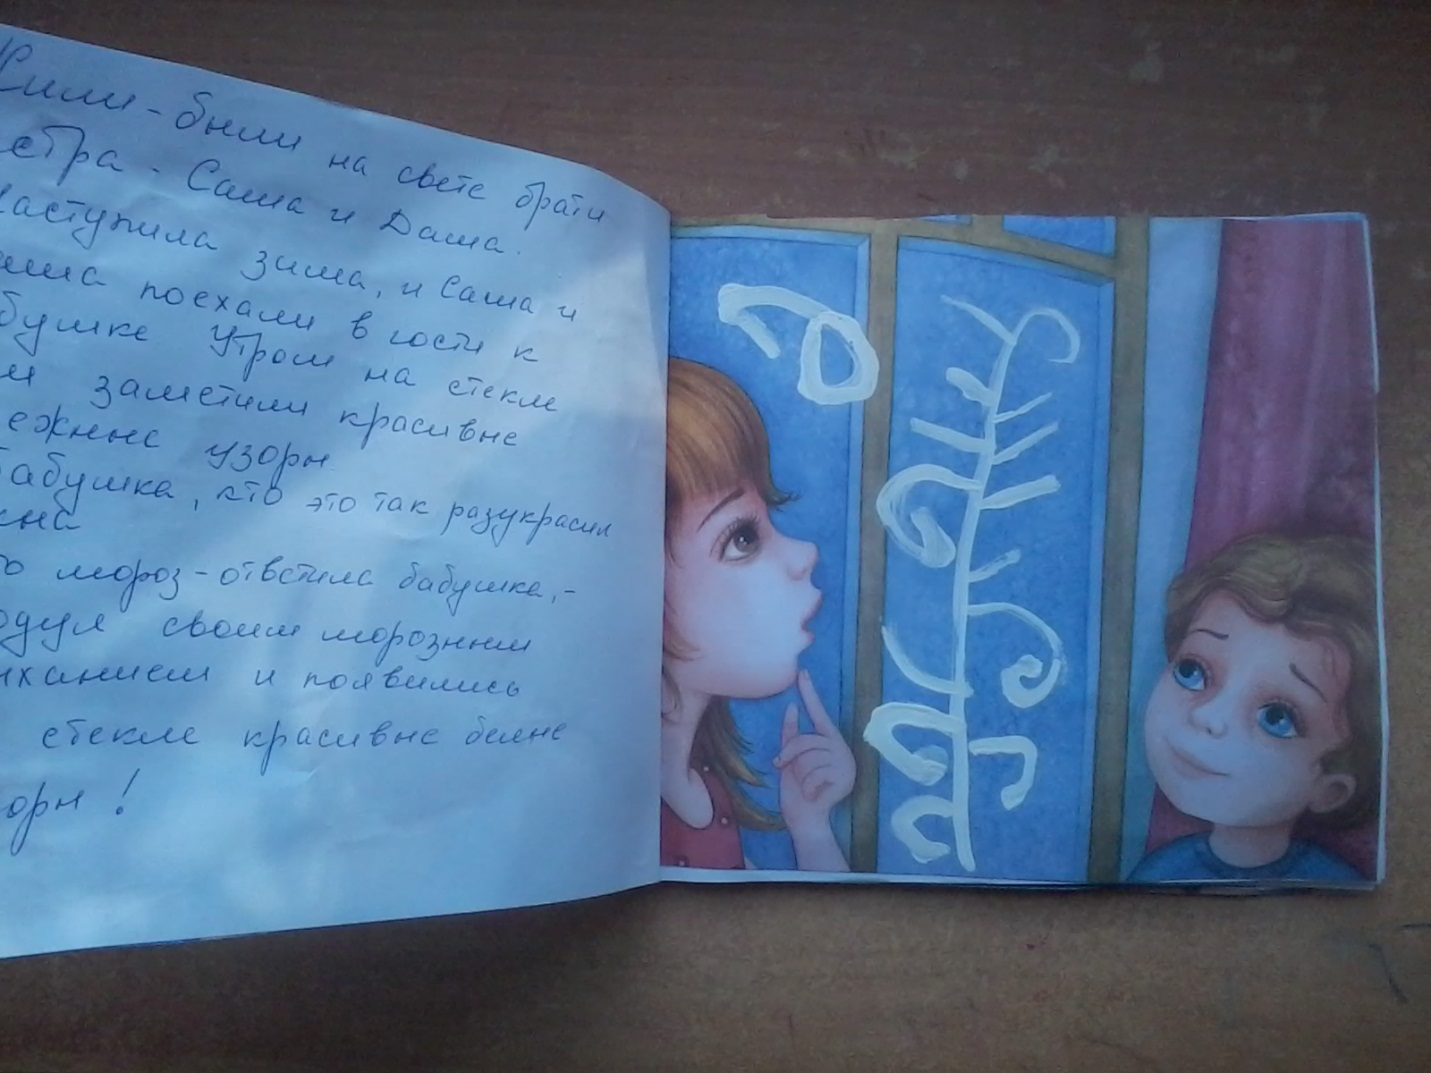 Жили-были на свете брат и
естра - Саша и Даша.
Наступила зима, и Саша и
аша поехали в гости к
бушке Утром на стекле
и заметили красивые
ежные узоры
бабушка, кто это так разукрасил
кна
то мороз - ответила бабушка, -
одул своим морозным
ыханием и появились
стекле красивые белые
оры!